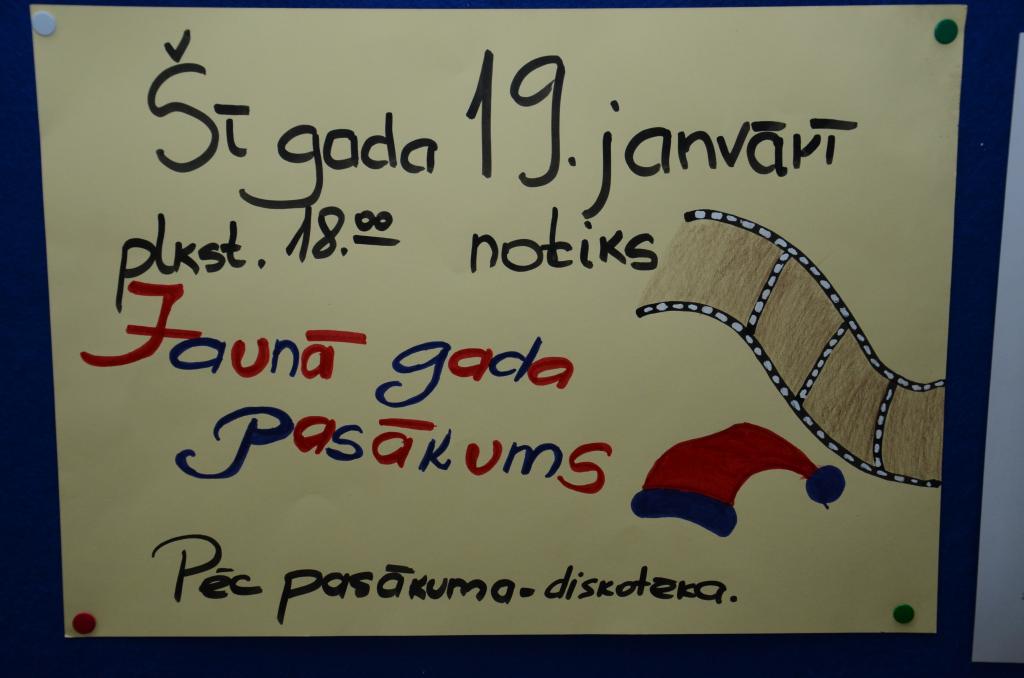 Šī gada 19. janvārī
plkst. 18.⁰⁰ notiks
Jaunā gada
Pasākums
Pēc pasākuma - diskoteka.